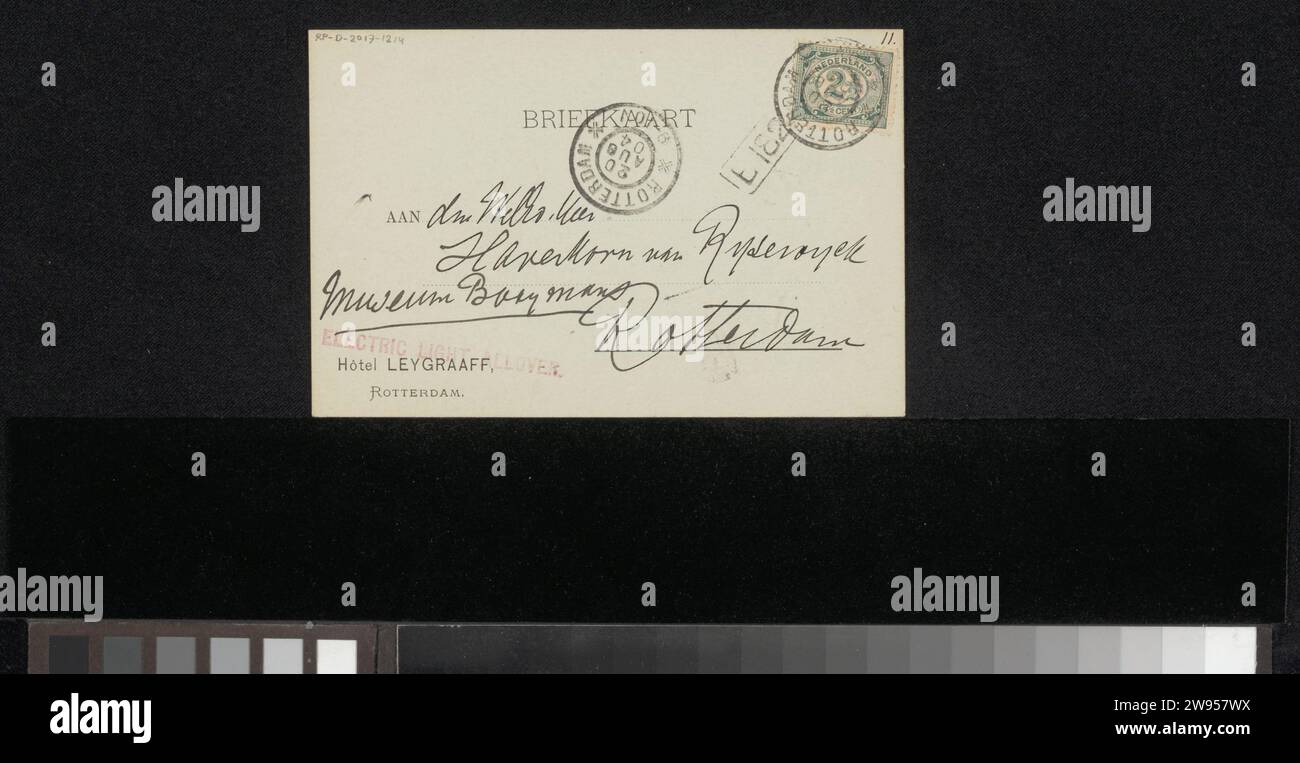 RP-D-2017-1214
11.
NEDERLAND
2½
CENT
BRIEFKAART
ROTTERDAM
20
AUG
04
ROTTERDAM
E 182
AAN den WelEd. Heer
Haverkorn van Rijsewijck
Museum Booymans
Rotterdam
ELECTRIC LIGHT ALLOVER.
Hôtel LEYGRAAFF,
ROTTERDAM.
alamy
alamy
Image ID: 2W957WX
www.alamy.com